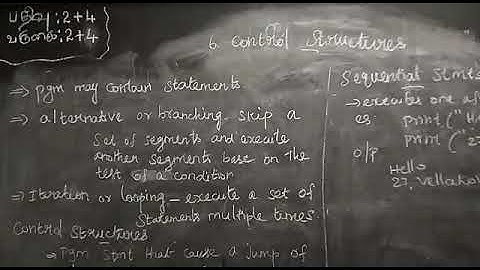 பதிவு : 2+4
வருகை : 2+4
6. Control Structures
⇒ pgm may contain statements
⇒ alternative or branching - skip a
set of segments and execute
another segments base on the
test of a condition
⇒ Iteration or looping - execute a set of
statements multiple times
Control Structures
→ Pgm stmt that cause a jump of
Sequential stmts
→ executes one af
eg: print ("H
print ("2
o/p
Hello
27, Vellakov